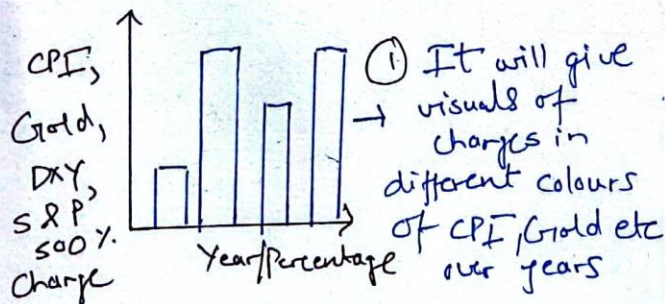 CPI,
Gold,
DXY,
S&P
500 %
Charge
Year/Percentage
① It will give
→ visuals of
charges in
different colours
of CPI, Gold etc
over years